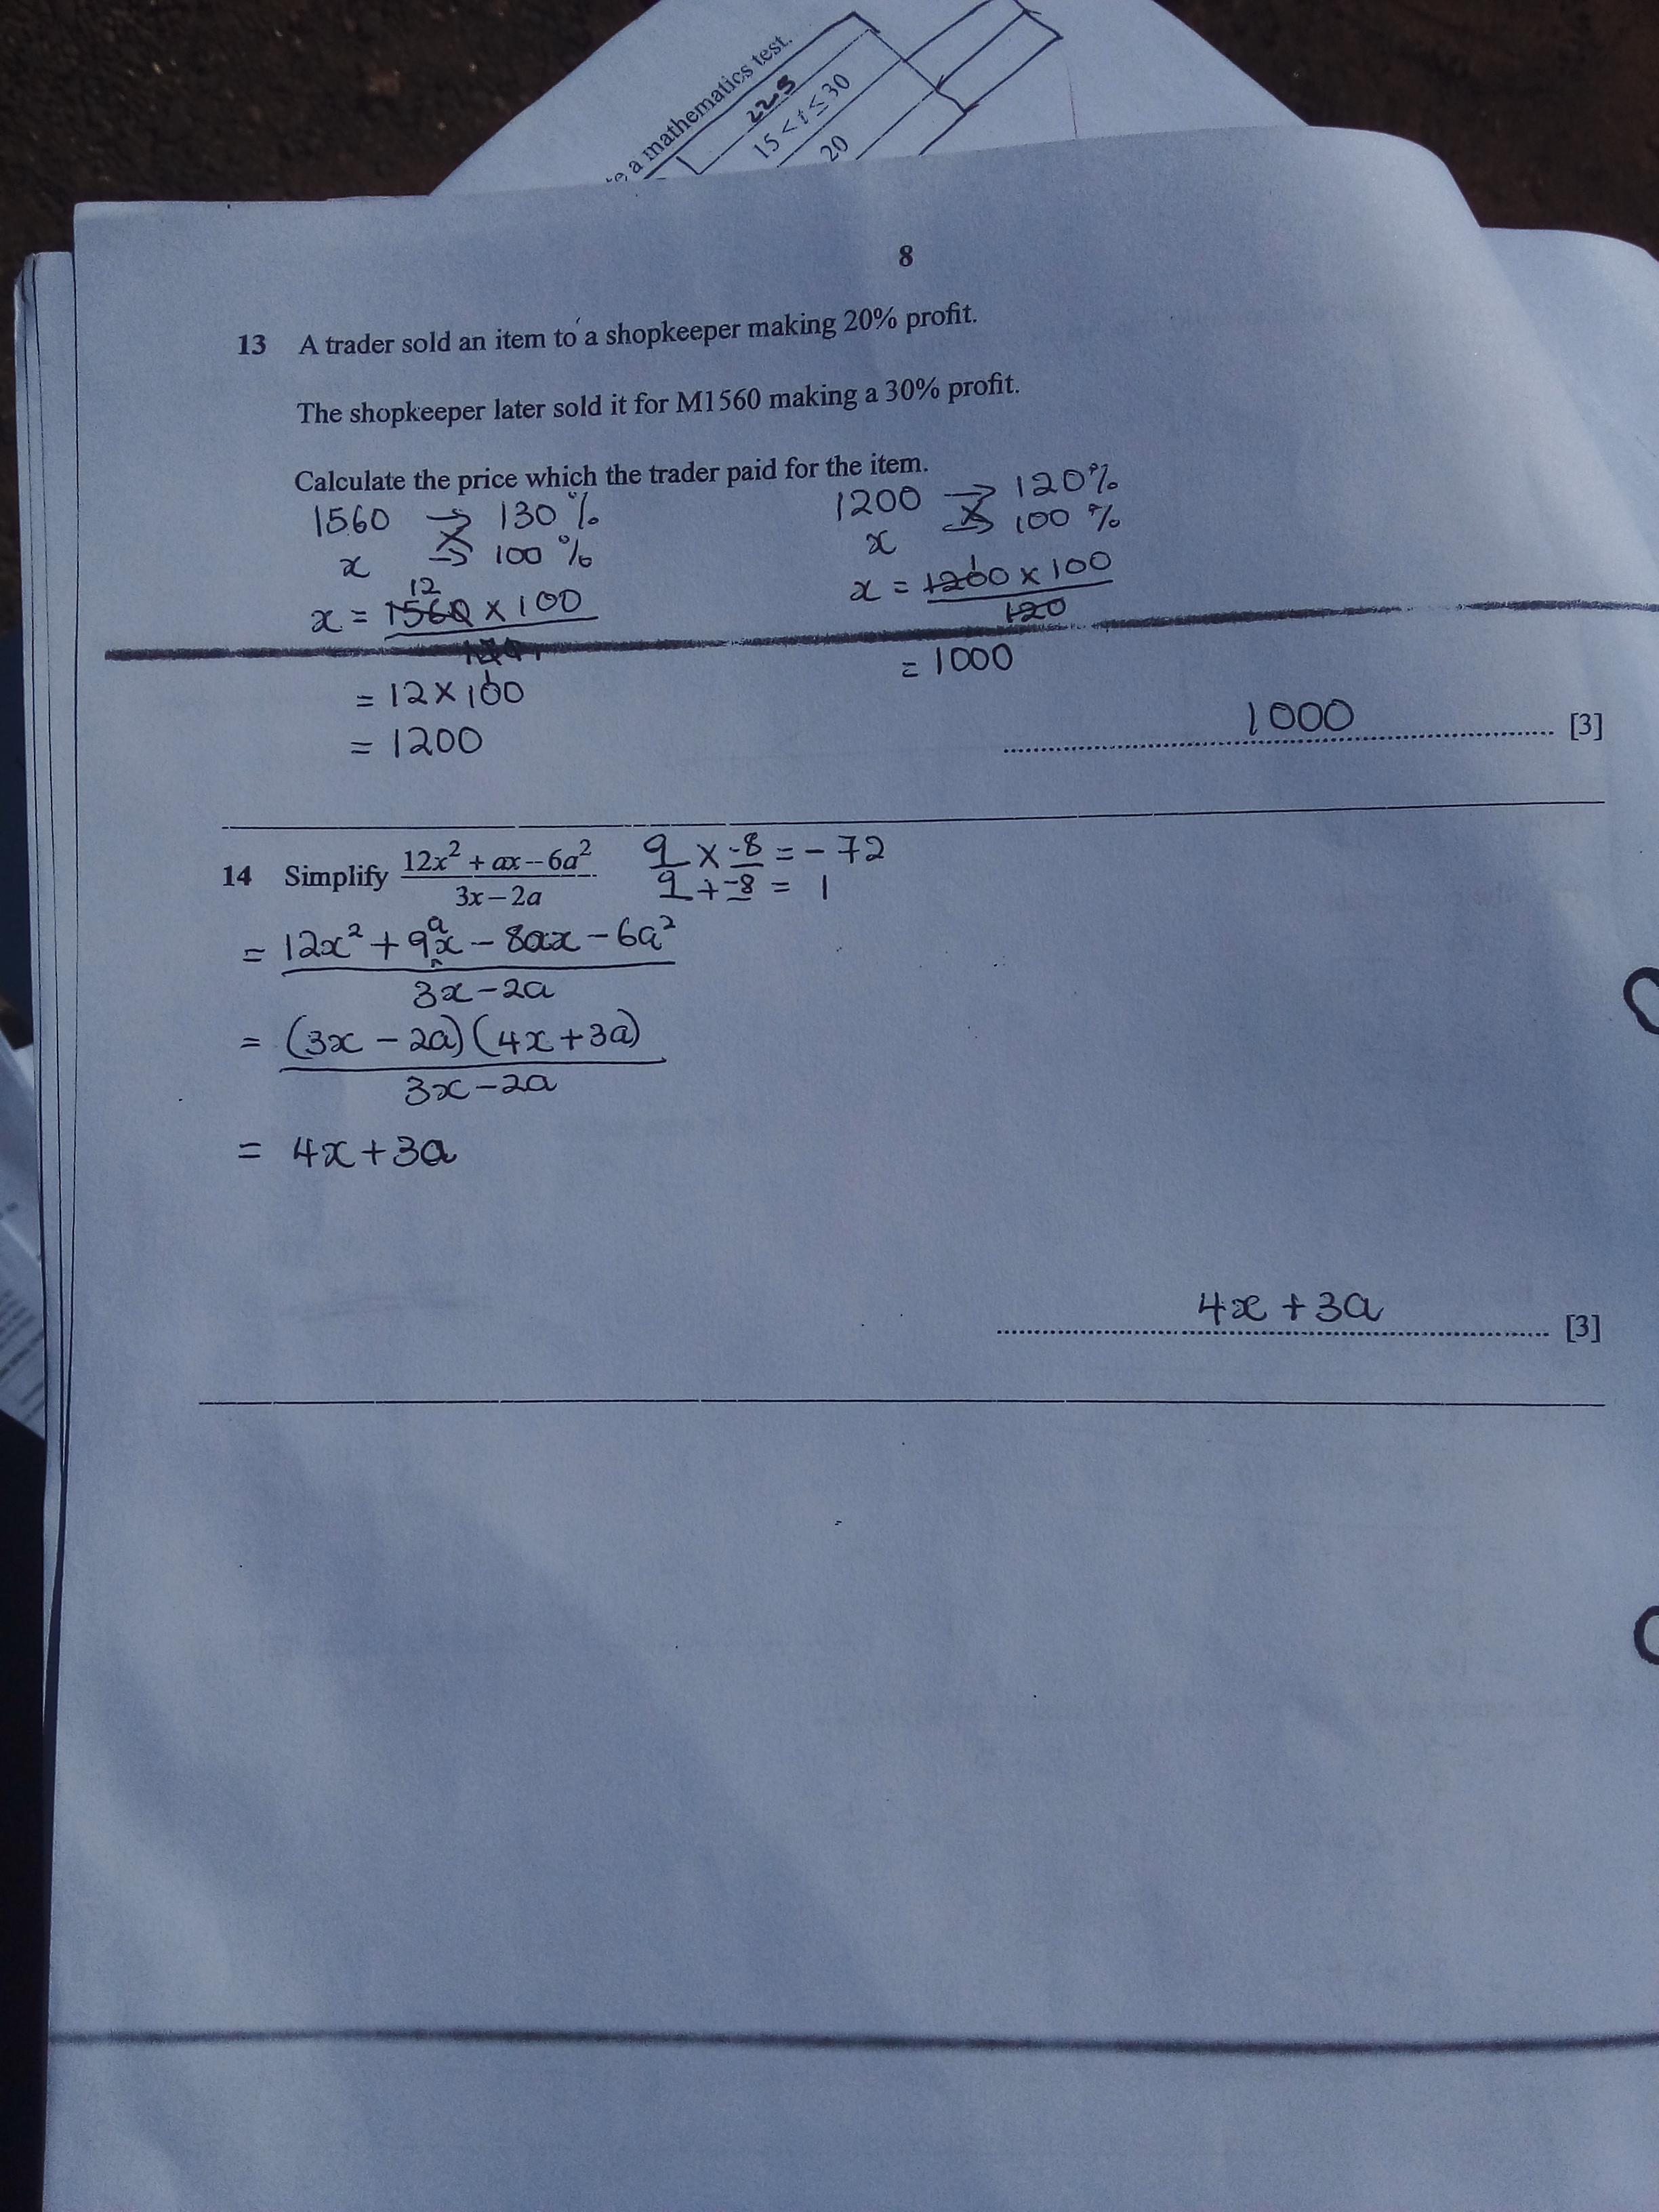 e, a mathematics test.
225
15 < t ≤ 30
20
8
13 A trader sold an item to a shopkeeper making 20% profit.
The shopkeeper later sold it for M1560 making a 30% profit.
Calculate the price which the trader paid for the item.
1560 → 130 %
x → 100 %
12
x = 1560 x 100
= 12 x 100
= 1200
1200 → 120 %
x → 100 %
1
x = 1200 x 100
120
= 1000
1000 [3]
14 Simplify 12x² + ax – 6a²
3x – 2a
9 x -8 = - 72
9 + -8 = 1
= 12x² + 9ax – 8ax – 6a²
3x – 2a
= (3x – 2a)(4x + 3a)
3x – 2a
= 4x + 3a
4x + 3a [3]